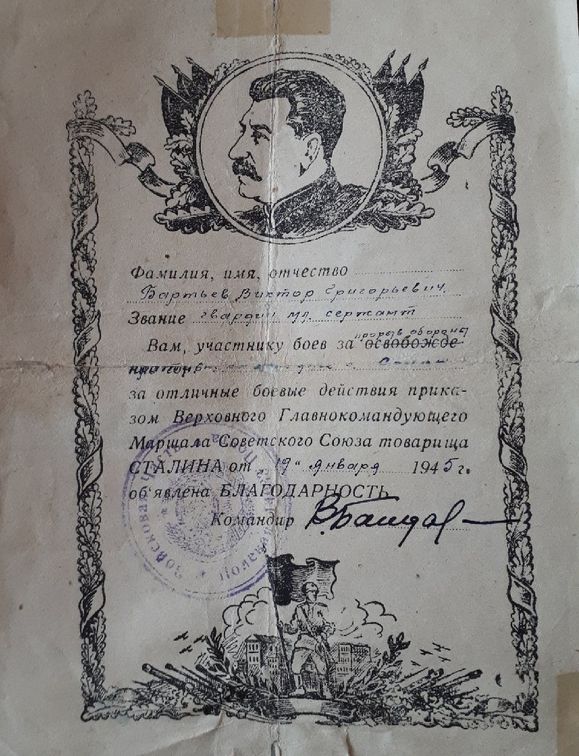 Фамилия, имя, отчество
Бартьев Виктор Григорьевич
Звание гвардии мл. сержант
прорыв обороны
Вам, участнику боев за освобожде
за отличные боевые действия прика-
зом Верховного Главнокомандующего
Маршала Советского Союза товарища
СТАЛИНА от „19" января 1945 г.
объявлена БЛАГОДАРНОСТЬ
Командир